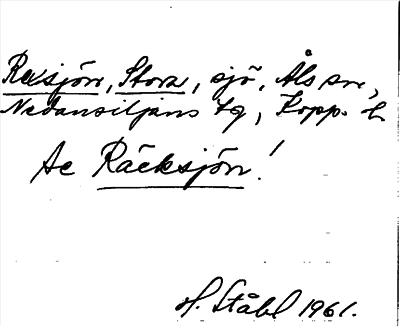 Rexsjön, Stora, sjö, Åls sn,
Nedansiljans tg, Kopp. l.
Se Räcksjön!
H. Ståhl 1961.